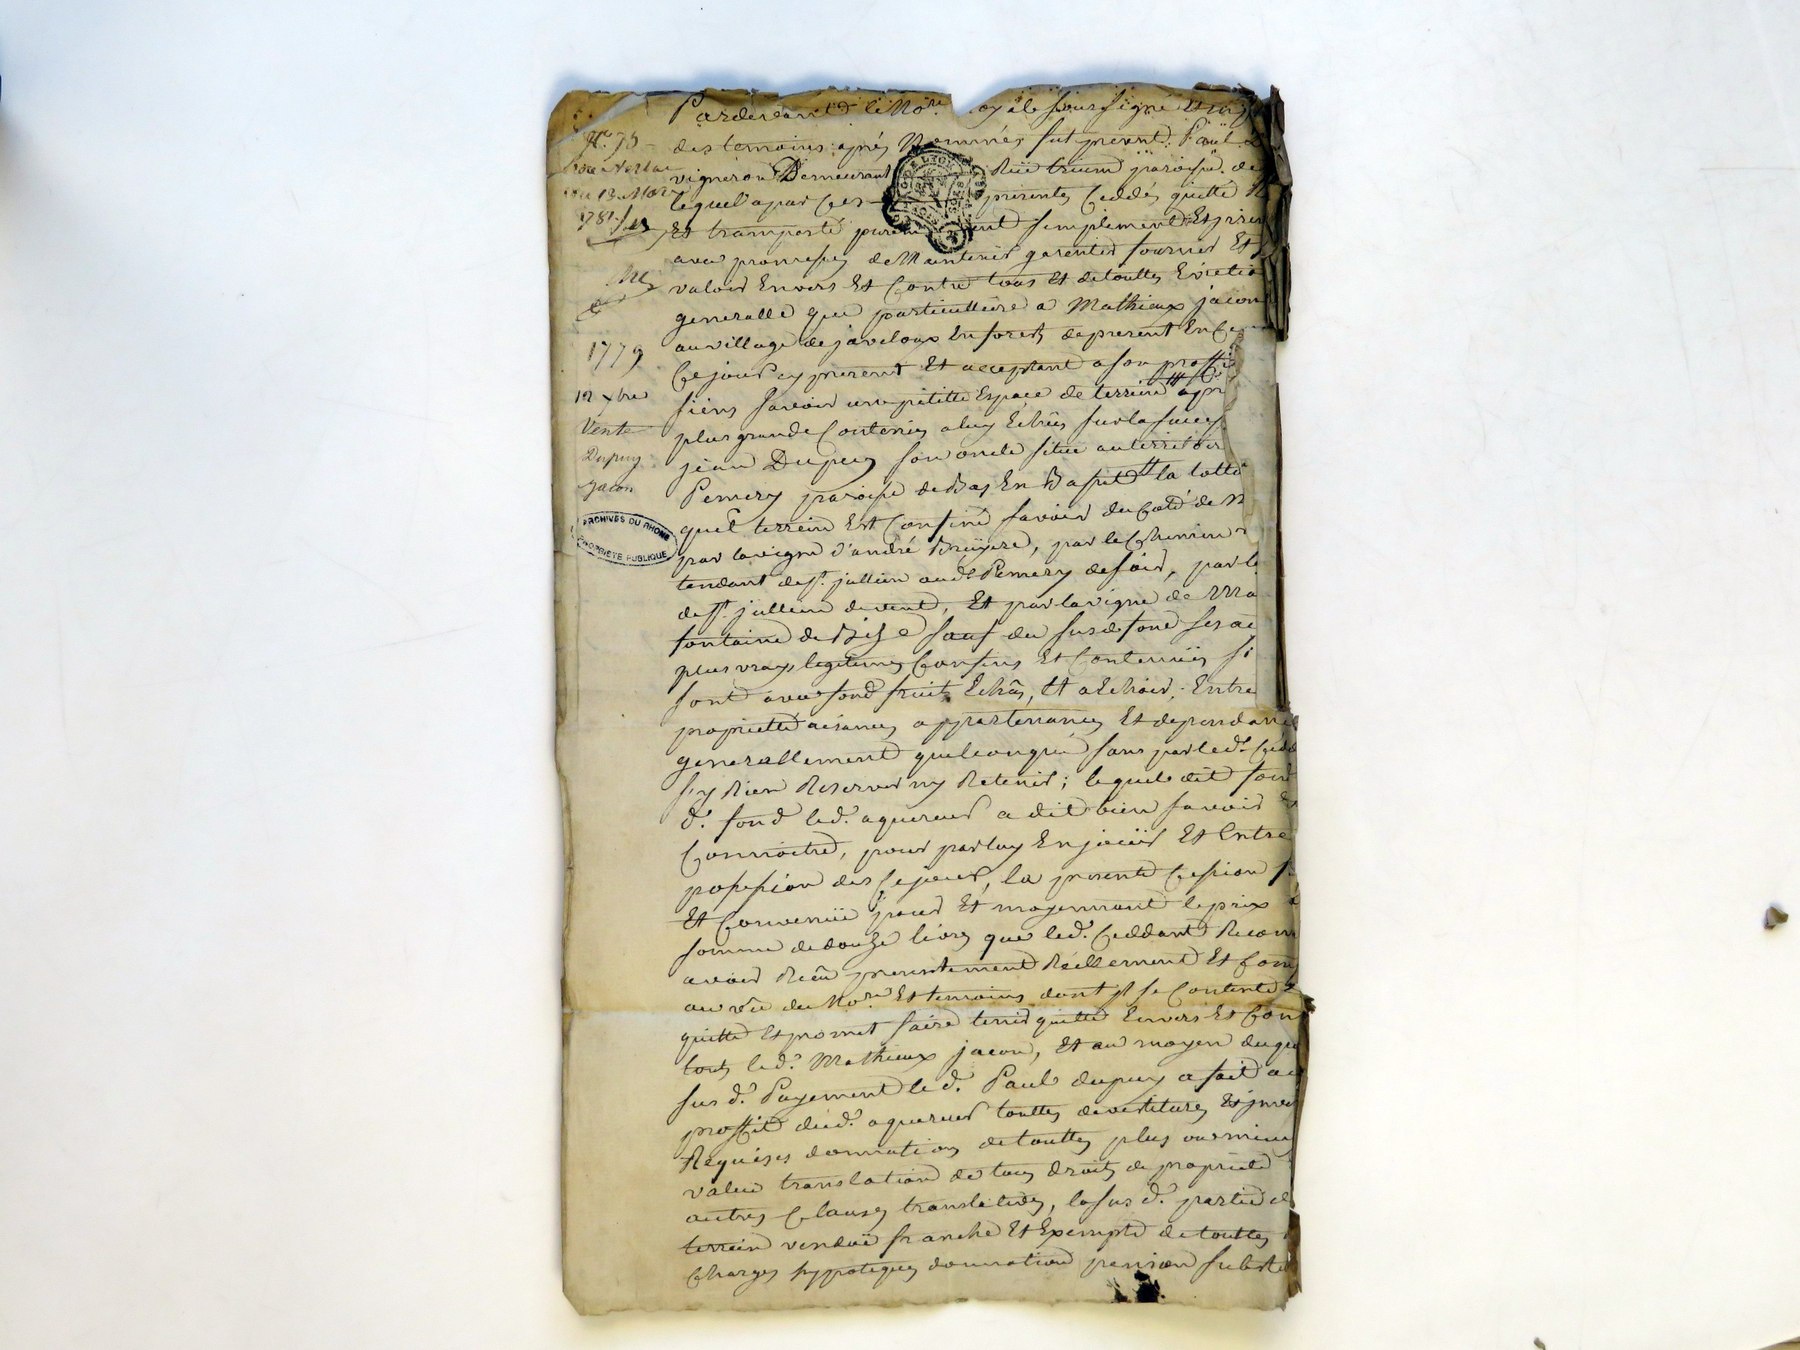 Pardevant le No.re Royale Soussigné Et en
des temoins aprés Nommés fut present Paul
vigneron Demeurant Rüe trium paroisse de
lequel a par Ces presentes Ceddés quitté
Et transporté purement simplement Et
avec promesses de Maintenir garentir fournir Et
valoir Envers Et Contre tous Et de touttes Evictio
generalle que particulliere a Mathieux jacon
au village de javeloux En forets de present En
Ce jour cy present Et acceptant a son proffit
siens Savoir une petitte Espace de terrein
plus grande Contenüe a luy Echüe sur la
jean Dupuy son oncle situé au territoir
Pemery paroisse de Bas En Basset la totti
quel terrein Est Confiné Savoir du Coté de
par la vigne d'andré Brüyere, par le Chemin
tendant de st. jullien aud. Pemery de soir, par le
de st. jullien de vent, Et par la vigne de Ma
fontaine de Bize Sauf du susd. fond ses
plus vrays legitimes Confins Et Contenües si
sont avec fond fruits Echüs, Et a Echoir, Entré
proprietté aisances appartenances Et dependan
generallement quelconques sans par led. Cedd
s'y Rien Reserver ny Retenir; lequel dit fond
d. fond led. aquereur a dit bien savoir
Connoitre, pour par luy En joüir Et Entre
possession des Ce jour, la presente Cession
Et Convenüe pour Et moyennant le prix
somme de douze livres que led. Ceddant Reconn
avoir Reçu presentement Réellement Et
au vüe du No.re Et temoins dont jl se Contente
quitte Et promet faire tenir quitte Envers Et Con
tous led. Mathieux jacon, Et au moyen du
sus d. Payement led. Paul dupuy a fait au
proffit dud. aquereur touttes devestitures Et
Requises donnations de touttes plus ou moins
value translation de tous droits de proprieté
autres Clauses translatives, la sus d. partie de
terrein vendüe franche Et Exempte de touttes
Charges hypoteques donnation pension substi
N.o 75
du 13 Mars
1781
1779
12 xbre
Vente
Dupuy
jacon
ARCHIVES DU RHONE
PROPRIETE PUBLIQUE